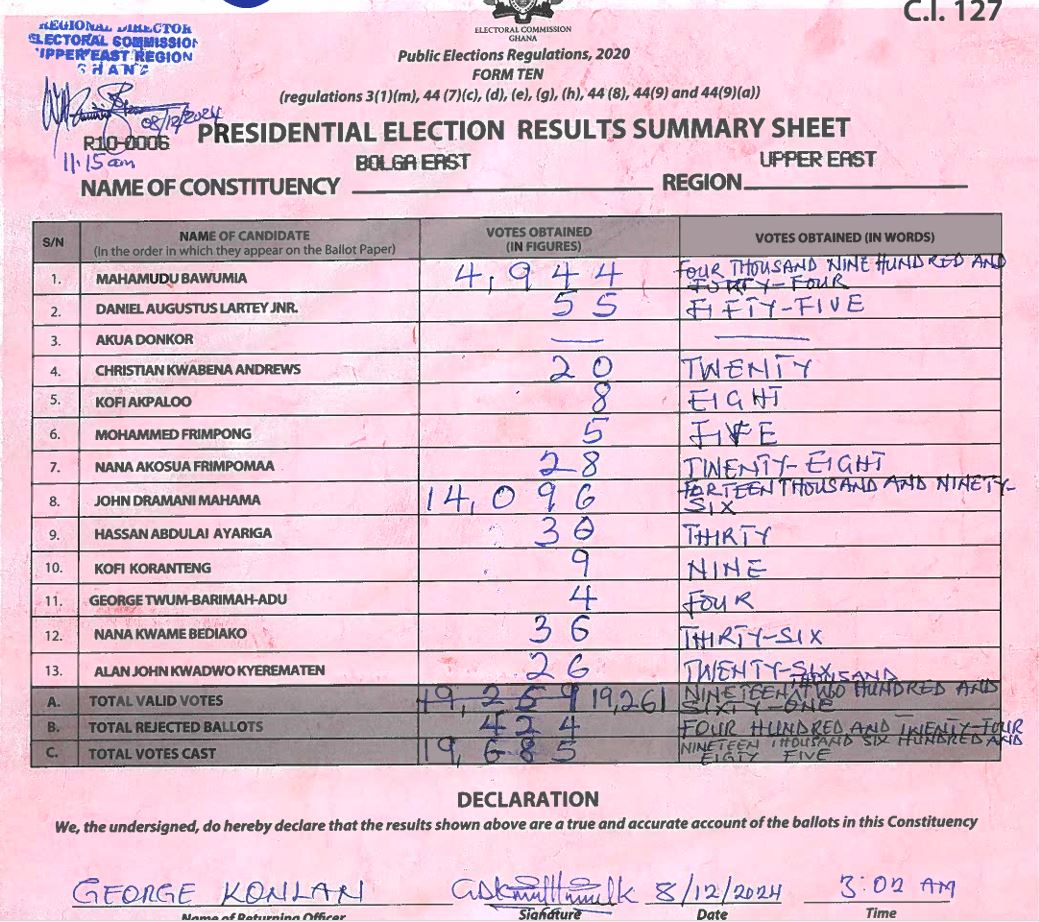 C.I. 127
REGIONAL DIRECTOR
ELECTORAL COMMISSION
UPPER EAST REGION
GHANA
08/12/2024
R10-0006
11:15am
ELECTORAL COMMISSION
GHANA
Public Elections Regulations, 2020
FORM TEN
(regulations 3(1)(m), 44 (7)(c), (d), (e), (g), (h), 44 (8), 44(9) and 44(9)(a))
PRESIDENTIAL ELECTION RESULTS SUMMARY SHEET
NAME OF CONSTITUENCY BOLGA EAST REGION UPPER EAST
S/N NAME OF CANDIDATE (In the order in which they appear on the Ballot Paper) VOTES OBTAINED (IN FIGURES) VOTES OBTAINED (IN WORDS)
1. MAHAMUDU BAWUMIA 4,944 FOUR THOUSAND NINE HUNDRED AND FORTY-FOUR
2. DANIEL AUGUSTUS LARTEY JNR. 55 FIFTY-FIVE
3. AKUA DONKOR — —
4. CHRISTIAN KWABENA ANDREWS 20 TWENTY
5. KOFI AKPALOO 8 EIGHT
6. MOHAMMED FRIMPONG 5 FIVE
7. NANA AKOSUA FRIMPOMAA 28 TWENTY-EIGHT
8. JOHN DRAMANI MAHAMA 14,096 FORTEEN THOUSAND AND NINETY-SIX
9. HASSAN ABDULAI AYARIGA 30 THIRTY
10. KOFI KORANTENG 9 NINE
11. GEORGE TWUM-BARIMAH-ADU 4 FOUR
12. NANA KWAME BEDIAKO 36 THIRTY-SIX
13. ALAN JOHN KWADWO KYEREMATEN 26 TWENTY-SIX
A. TOTAL VALID VOTES 19,259 19,261 NINETEEN THOUSAND TWO HUNDRED AND SIXTY-ONE
B. TOTAL REJECTED BALLOTS 424 FOUR HUNDRED AND TWENTY-FOUR
C. TOTAL VOTES CAST 19,685 NINETEEN THOUSAND SIX HUNDRED AND EIGTY FIVE
DECLARATION
We, the undersigned, do hereby declare that the results shown above are a true and accurate account of the ballots in this Constituency
GEORGE KONLAN 8/12/2024 3:02 AM
Name of Returning Officer Signature Date Time